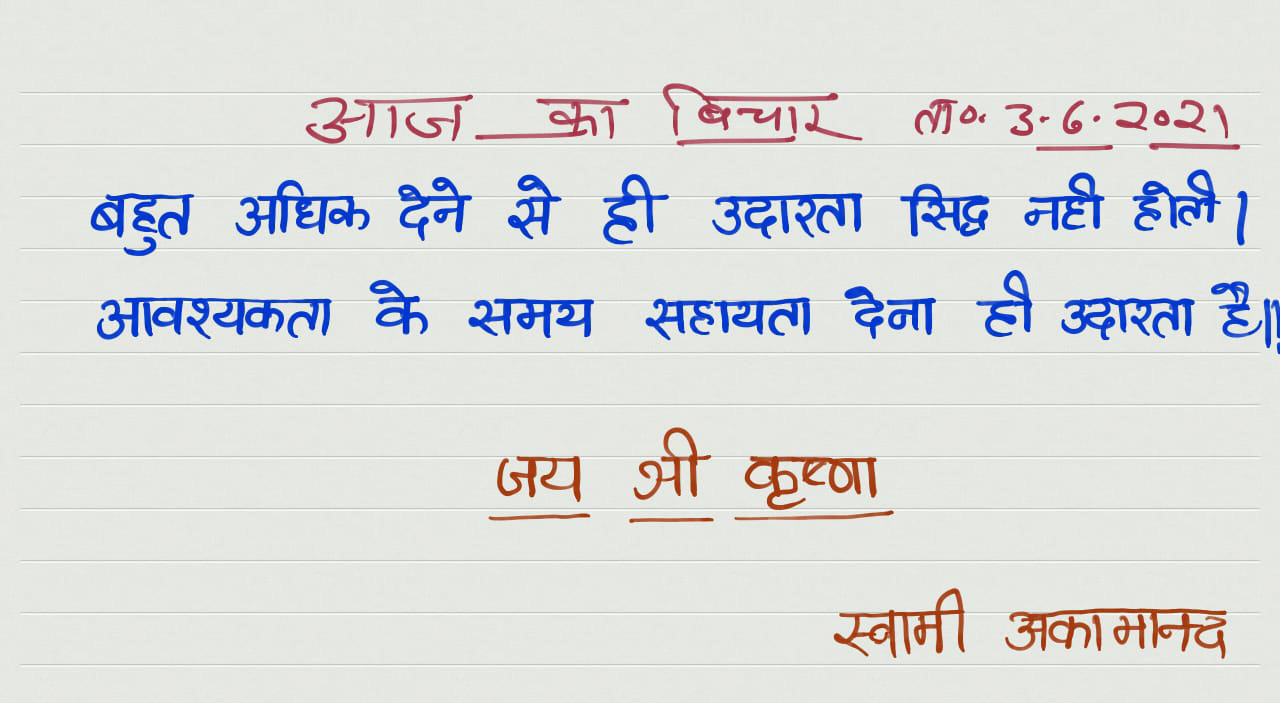 आज का बिचार ता०. 3.6.2021
बहुत अधिक देने से ही उदारता सिद्ध नही होती।
आवश्यकता के समय सहायता देना ही उदारता है॥
जय श्री कृष्णा
स्वामी अकामानन्द